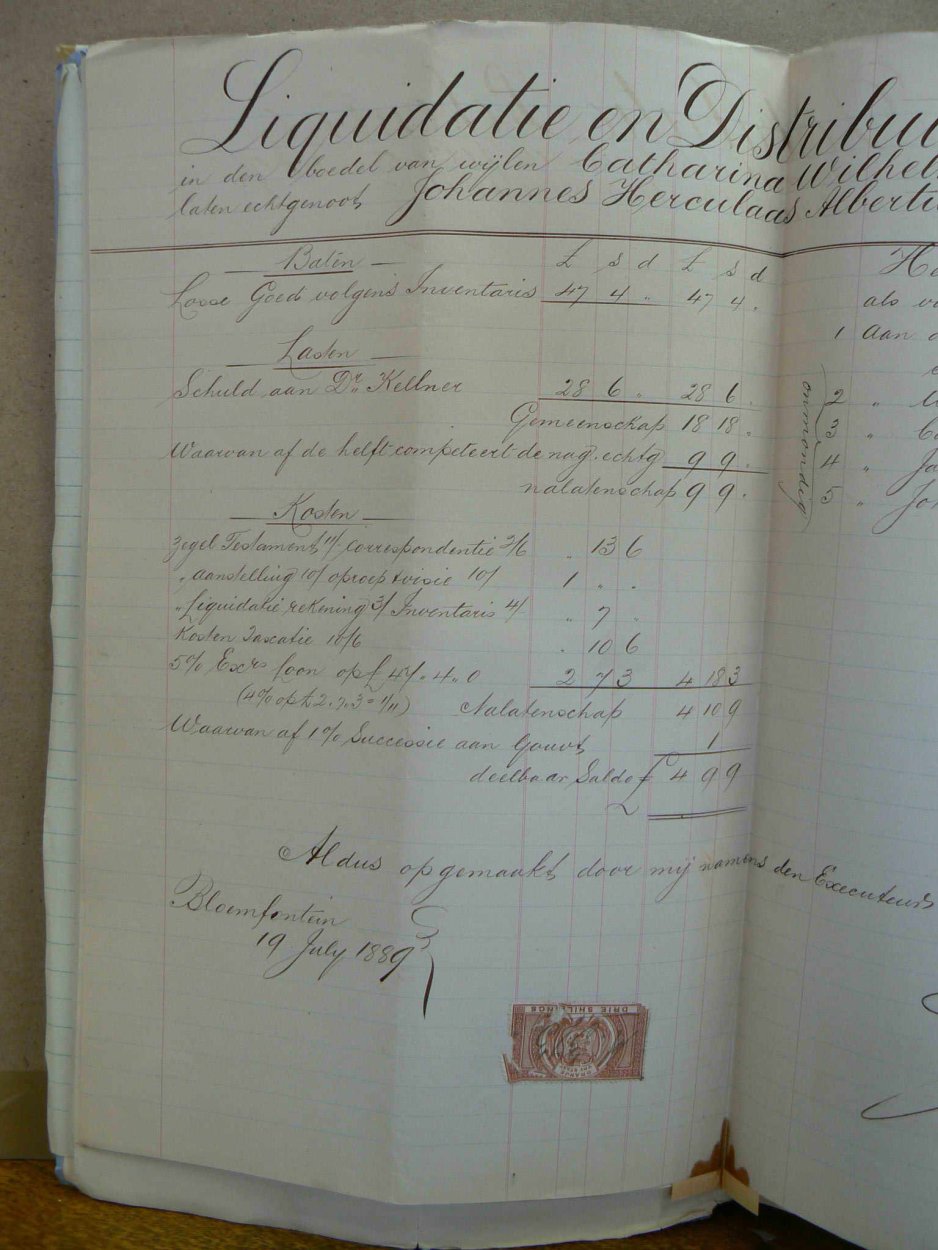 Liquidatie en Distribu
in den boedel van wijlen Catharina Wilhel
laten echtgenoot Johannes Herculaas Albertu
Baten £ s d £ s d
Losse Goed volgens Inventaris 47 4 „ 47 4 „
Lasten
Schuld aan Dr. Kellner 28 6 „ 28 6 „
Gemeenschap 18 18 „
Waarvan af de helft competeert de nag. echtg 9 9 „
nalatenschap 9 9 „
Kosten
Zegel Testament 1/- correspondentie 2/6 „ 13 6
„ aanstelling 10/ oproep & visie 10/ 1 „ „
„ liquidatie rekening 3/ Inventaris 4/ „ 7 „
Kosten Taxatie 10/6 „ 10 6
5% Exrs loon op £ 47„ 4„ 0 2 7 3 4 18 3
(4% op £ 2„ 7„ 3 = 1/11) Nalatenschap 4 10 9
Waarvan af 1% Successie aan Gouvt 1
deelbaar Saldo £ 4 9 9
Aldus opgemaakt door mij namens den Executeurs
Bloemfontein
19 July 1889
DRIE SHILLINGS
ORANJE
VRIJ STAAT
He
als vo
1 Aan d
2 „
3 „
4 „ Ja
5 „ Jo
onmondig